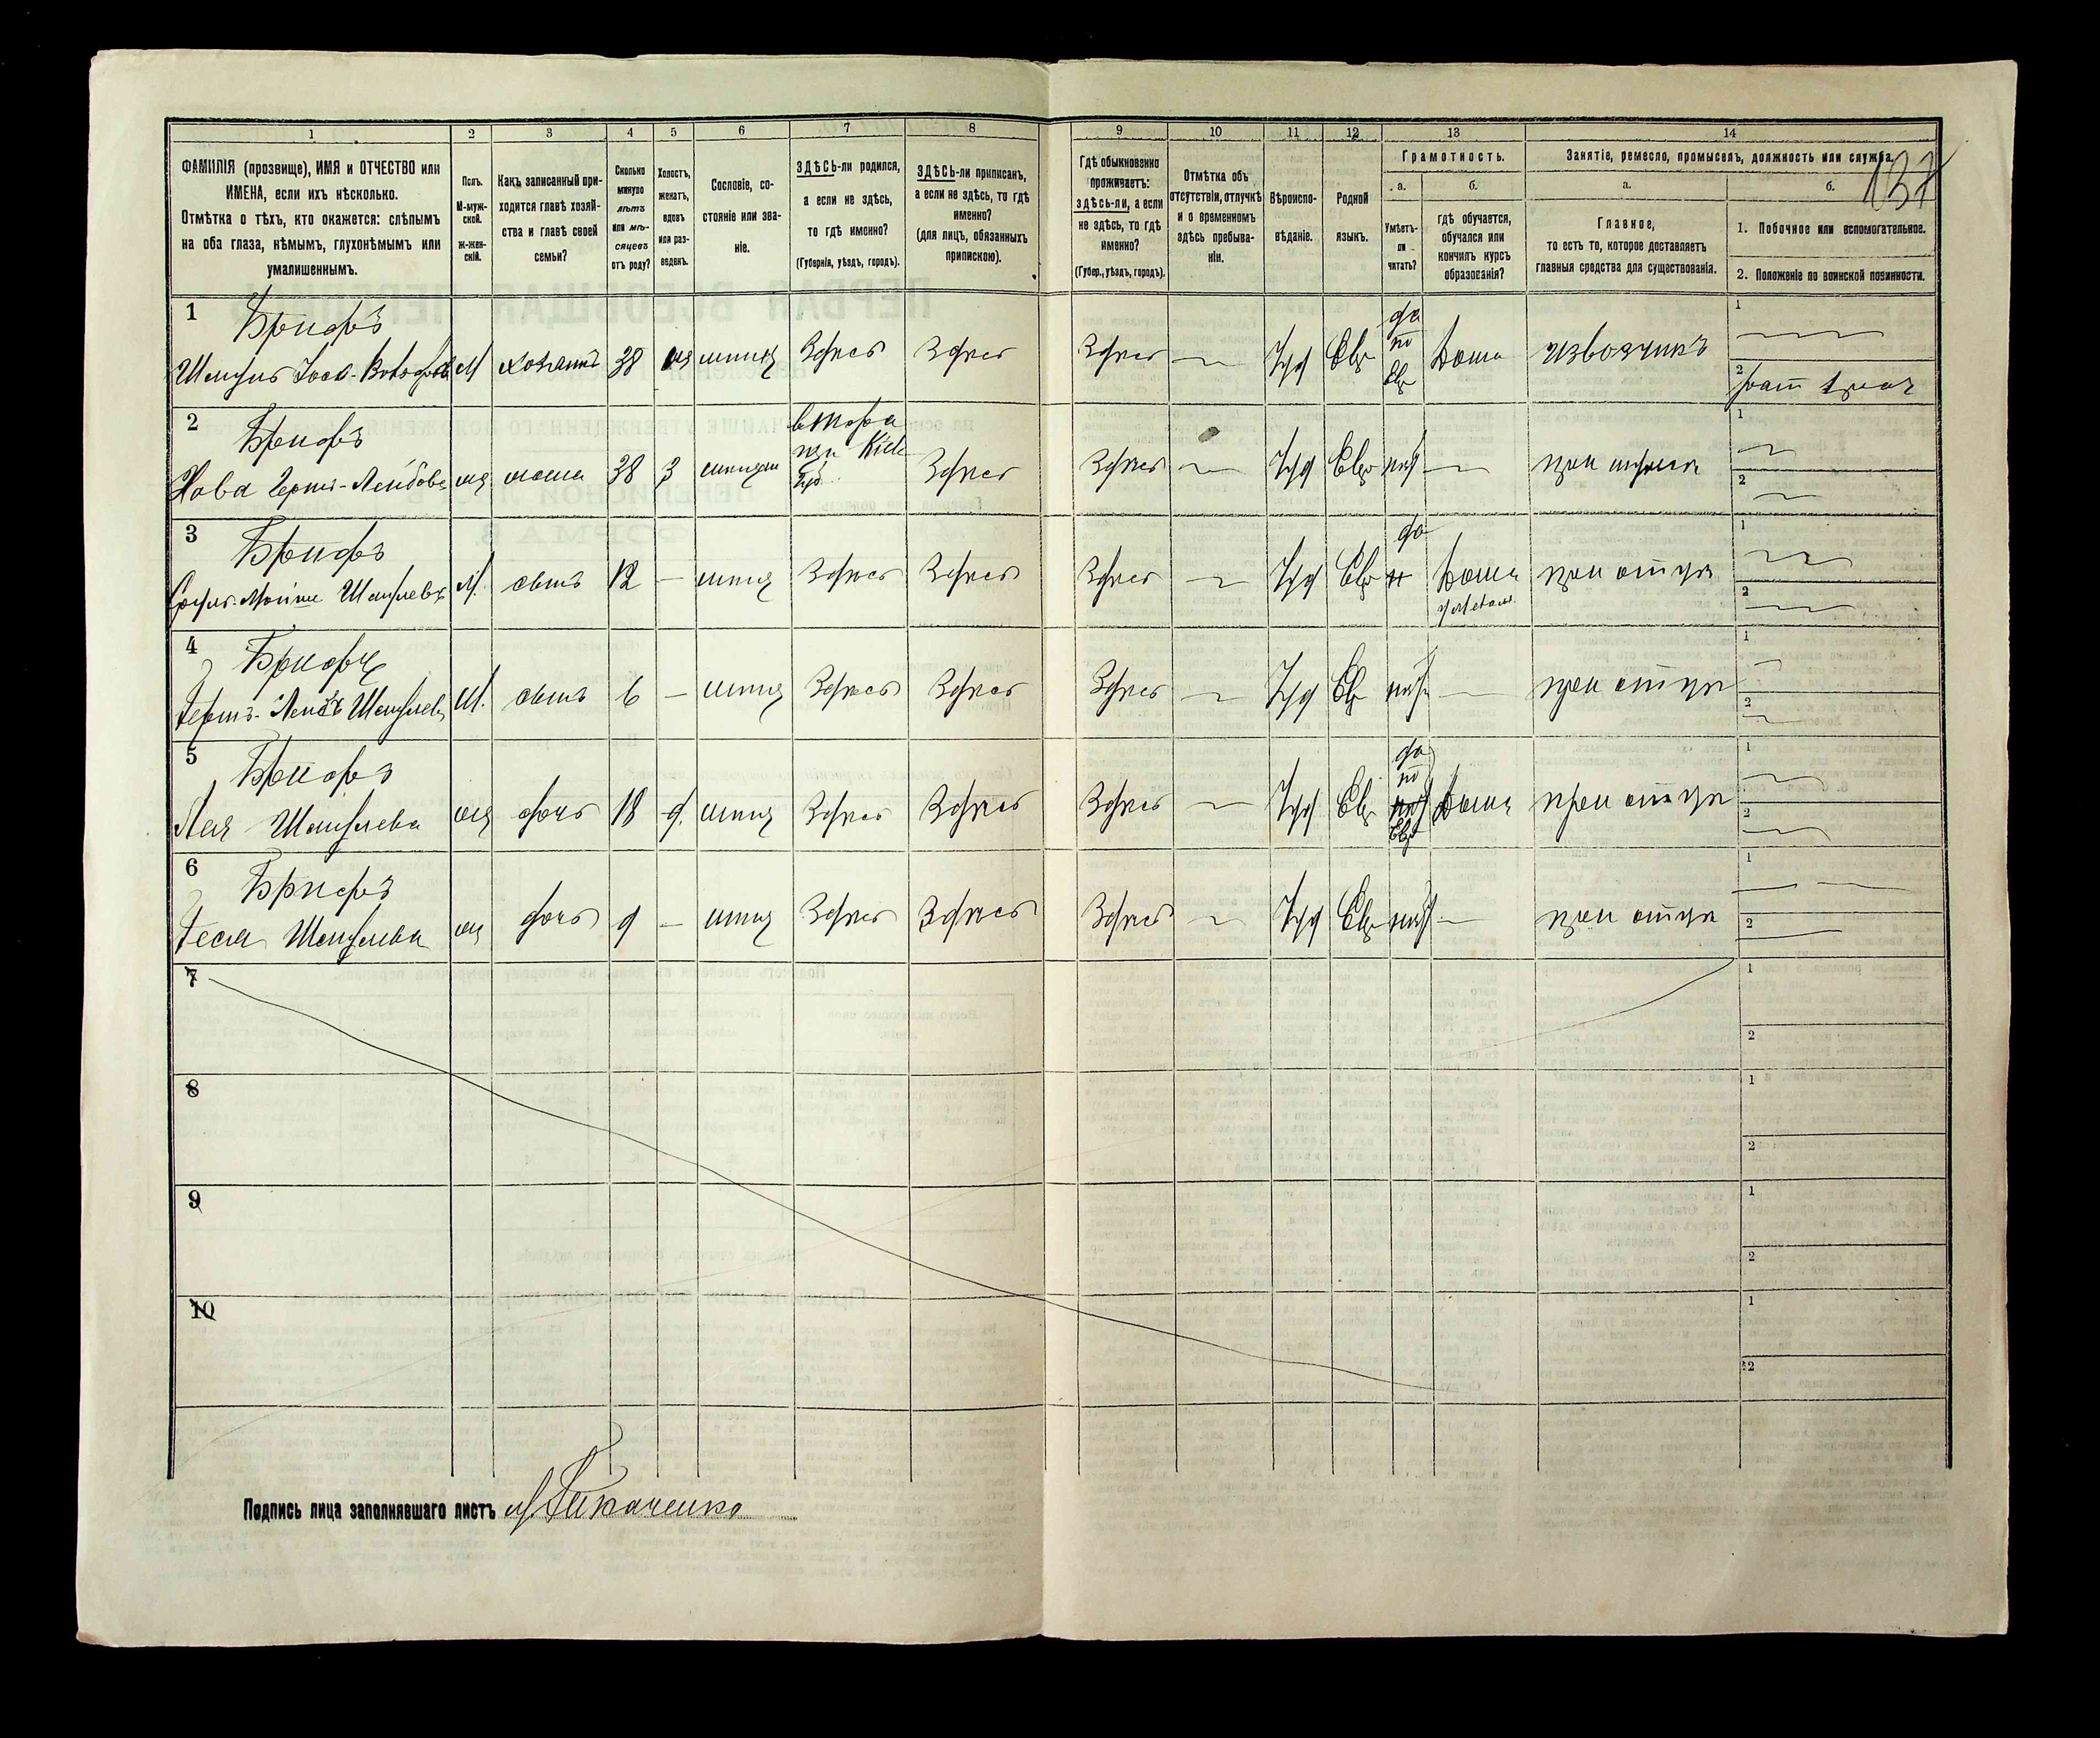 137
1 2 3 4 5 6 7 8 9 10 11 12 13 14
ФАМИЛІЯ (прозвище), ИМЯ и ОТЧЕСТВО или
ИМЕНА, если ихъ нѣсколько.
Отмѣтка о тѣхъ, кто окажется: слѣпымъ
на оба глаза, нѣмымъ, глухонѣмымъ или
умалишеннымъ.
Полъ.
М-муж-
ской.
Ж-жен-
скій.
Какъ записанный при-
ходится главѣ хозяй-
ства и главѣ своей
семьи?
Сколько
минуло
лѣтъ
или мѣ-
сяцевъ
отъ роду?
Холостъ,
женатъ,
вдовъ
или раз-
веденъ.
Сословіе, со-
стояніе или зва-
ніе.
ЗДѢСЬ-ли родился,
а если не здѣсь,
то гдѣ именно?
(Губернія, уѣздъ, городъ).
ЗДѢСЬ-ли приписанъ,
а если не здѣсь, то гдѣ
именно?
(для лицъ, обязанныхъ
припискою).
Гдѣ обыкновенно
проживаетъ:
здѣсь-ли, а если
не здѣсь, то гдѣ
именно?
(Губер., уѣздъ, городъ).
Отмѣтка объ
отсутствіи, отлучкѣ
и о временномъ
здѣсь пребыва-
ніи.
Вѣроиспо-
вѣданіе.
Родной
языкъ.
Грамотность.
а. б.
Умѣетъ-
ли
читать?
гдѣ обучается,
обучался или
кончилъ курсъ
образованія?
Занятіе, ремесло, промыселъ, должность или служба.
а. б.
Главное,
то есть то, которое доставляетъ
главныя средства для существованія.
1. Побочное или вспомогательное.
2. Положеніе по воинской повинности.
1 Брифъ
М хозяинъ 38 Здѣсь Здѣсь Здѣсь Іуд Евр да по Евр Дома извозчикъ
1
2
2 Брифъ
Хова Гершъ-Лейбова 38 З Кіев Губ Здѣсь Здѣсь Іуд Евр нѣт при мужѣ
1
2
3 Брифъ
М. сынъ 12 — Здѣсь Здѣсь Здѣсь Іуд Евр да Дома при отцѣ
1
2
4
Гершъ-Лейбъ М. сынъ 6 — Здѣсь Здѣсь Здѣсь Іуд Евр нѣт — при отцѣ
1
2
5 Брифъ
Лея Шмулева дочь 18 д. Здѣсь Здѣсь Здѣсь Іуд Евр да по Евр Дома при отцѣ
1
2
6 Брифъ
Геся Шмулева дочь 9 — Здѣсь Здѣсь Здѣсь Іуд Евр нѣт — при отцѣ
1
2
7
1
2
8
1
2
9
1
2
10
1
2
Подпись лица заполнявшаго листъ